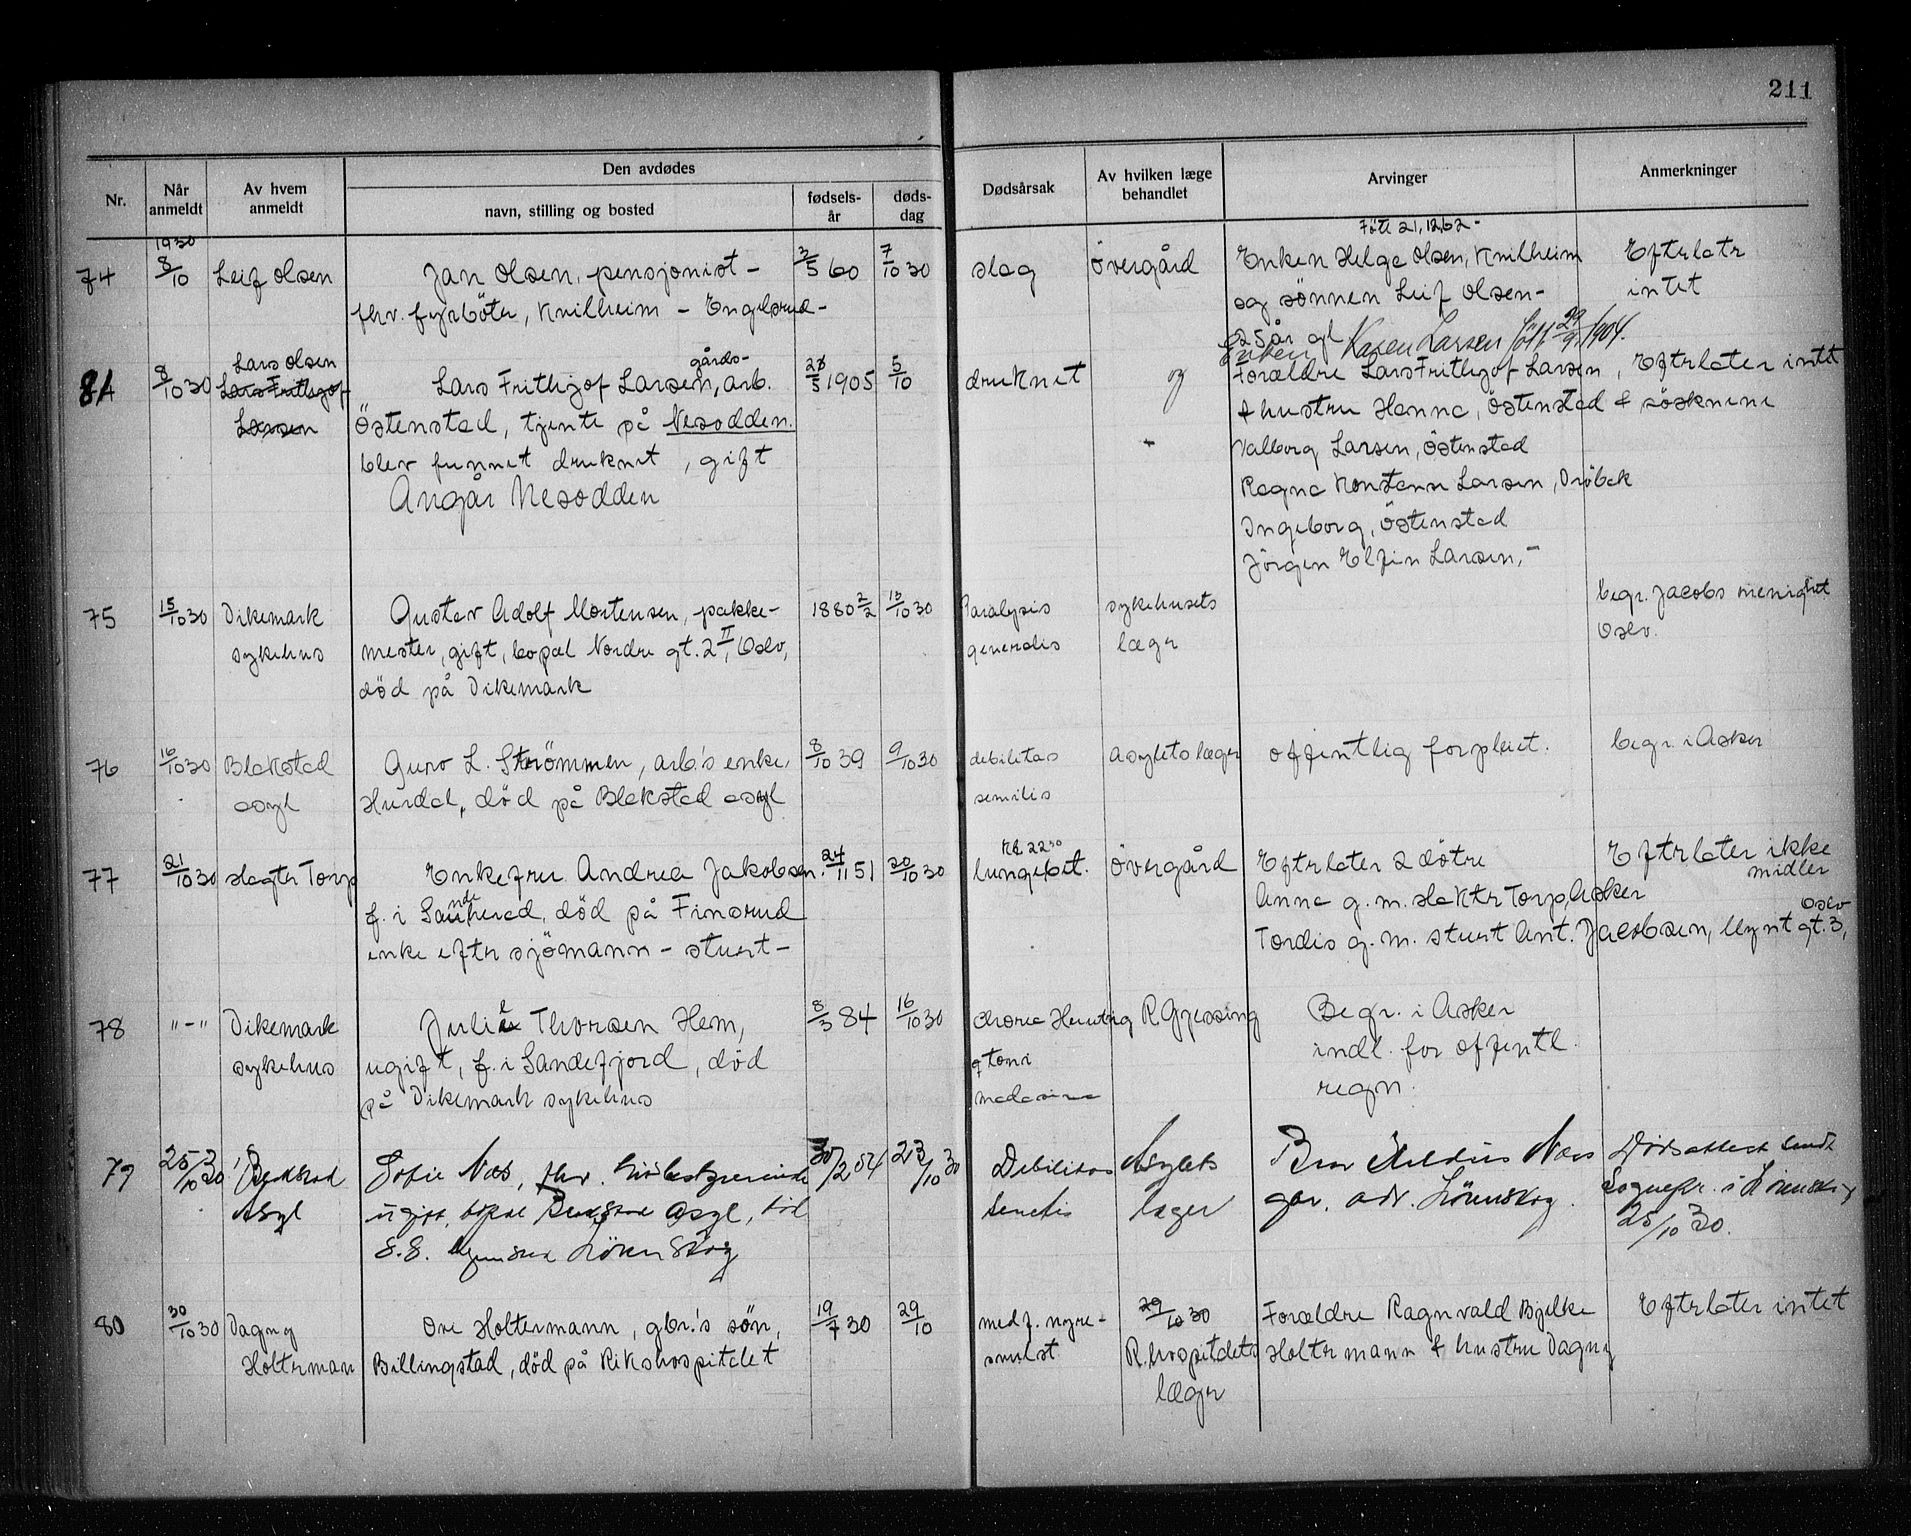 211
Nr.
Når anmeldt
Av hvem anmeldt
Den avdødes
navn, stilling og bosted
fødsels-år
døds-dag
Dødsårsak
Av hvilken læge behandlet
Arvinger
Anmerkninger
1930
74 8/10 Leif Olsen
Jan Olsen, pensjonist -
fhv. fyrböter, Knilheim - Engelsrud -
3/5 60 7/10 30
slag Övergård
Född 21.12.62 -
Enken Helga Olsen, Knilheim
og sönnen Leif Olsen -
25 år gl
Efterlatr
intet
81 8/10 30 Lars Olsen
Lars Frithjof
Larsen
gårds-
Lars Frithjof Larsen, arb.
Östenstad, tjente på Nesodden.
blev funnet druknet, gift
Angår Nesodden
5 1905 5/10
druknet og -
Enken Karen Larsen född 29/9 1904.
Forældre Lars Frithjof Larsen, Efterlater intet
& hustru Hanna, Östenstad & sösknene
Valborg Larsen, Östenstad
Ragna Konstanse Larsen, Dröbak
Ingeborg, Östenstad
Jörgen Elfin Larsen, -
75 15/10 30 Dikemark
sykehus
Gustav Adolf Mortensen, pakke-
mester, gift, bopæl Nordre gt. 2 II, Oslo,
död på Dikemark
1880 2/2 13/10 30
Paralysis
generalis
sykehusets
læger
begr. Jacobs menighet
Oslo.
76 16/10 30 Blakstad
asyl
Guro L. Strömmen, arb.'s enke,
Hurdal, död på Blakstad asyl
8/10 39 9/10 30
debilitas
senilis
asylets læger
offentlig forpleiet.
begr. i Asker
77 21/10 30 slagter Torp
Enkefru Andrea Jakobsen.
f. i Sauherad, död på Finsrud
enke efter sjömann - stuert -
24/11 51 20/10 30
Kl. 22 30
lungebet. Övergård
Efterlater 2 dötre
Anna g. m. slaktr Torp, Asker
Tordis g. m. stuert Ant. Jacobsen, Mynt gt. 3,
Oslo
Efterlater ikke
midler
78 "-" Dikemark
sykehus
Julie Thorsen Hem,
ugift, f. i Sandefjord, död
på Dikemark sykehus
8/3 84 16/10 30
chorea
R. Gjessing
Begr. i Asker
indl. for offentl.
regn.
79 25/10 30 Blakstad
Asyl
Sofie Næs, fhv.
ugift, bopæl Blakstad Asyl, död
S.S. Lörenskog
30/2 54 23/10 30
Debilitas
senilis
Asylets
læger
Bror Næss
går. adr. Lörenskog.
Dödsattest sendt
Sognepr. i Lörenskog
25/10 30.
80 30/10 30 Dagny
Holterman
Ove Holtermann, gbr.'s sön,
Billingstad, död på Rikshospitalet
19/7 30 29/10
medf. nyre-
svulst
29/10 30
R. hospitalets
læger
Forældre Ragnvald Bjelke
Holtermann & hustru Dagny
Efterlater intet